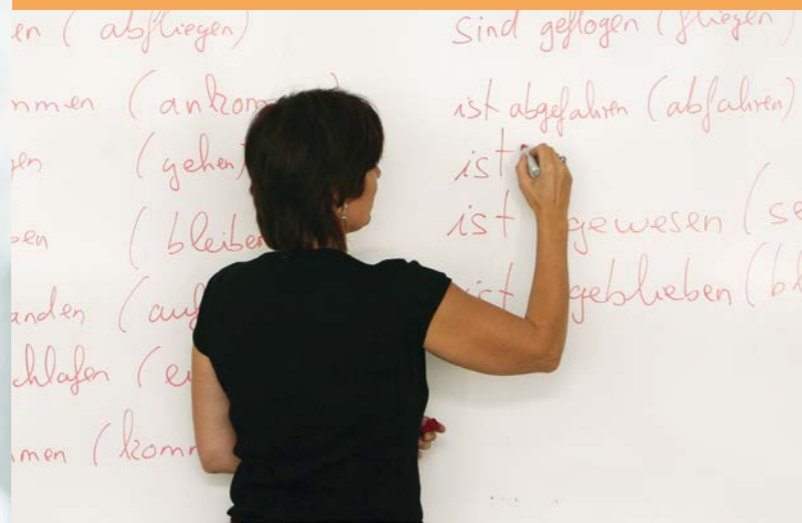 en (abfliegen)
mmen (ankom
gen (gehen)
ben (bleiben
anden (auf
chlafen (ei
mmen (komm
sind geflogen (fliegen)
ist abgefahren (abfahren)
ist
ist gewesen (se
ist geblieben (bl